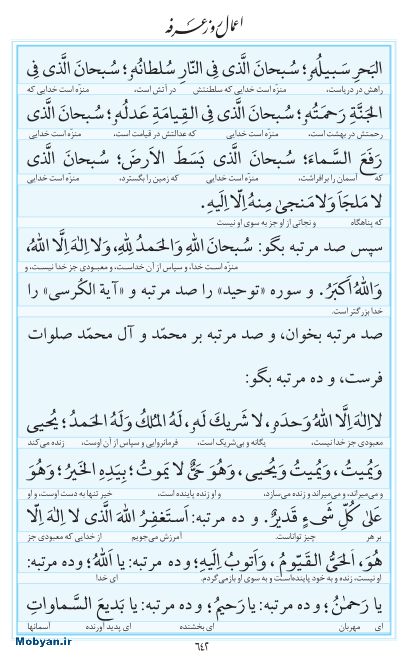 اعمال روز عرفه
البَحرِ سَبیلُهُ؛ سُبحانَ الَّذی فِی النّارِ سُلطانُهُ؛ سُبحانَ الَّذی فِی
راهش در دریاست، منزّه است خدایی که سلطنتش در آتش است، منزّه است خدایی که
الجَنَّةِ رَحمَتُهُ؛ سُبحانَ الَّذی فِی القِیامَةِ عَدلُهُ؛ سُبحانَ الَّذی
رحمتش در بهشت است، منزّه است خدایی که عدالتش در قیامت است، منزّه است خدایی
رَفَعَ السَّماءَ؛ سُبحانَ الَّذی بَسَطَ الاَرضَ؛ سُبحانَ الَّذی
که آسمان را برافراشت، منزّه است خدایی که زمین را بگسترد، منزّه است خدایی
لا مَلجَاَ وَلا مَنجیٰ مِنهُ اِلّا اِلَیهِ.
که پناهگاه و نجاتی از او جز به سوی او نیست
سپس صد مرتبه بگو: سُبحانَ اللهِ وَالحَمدُ لِلّٰهِ، وَلا اِلٰهَ اِلَّا اللهُ،
منزّه است خدا، و سپاس از آن خداست، و معبودی جز خدا نیست، و
وَاللهُ اَکبَرُ. و سوره «توحید» را صد مرتبه و «آیة الکُرسی» را
خدا بزرگتر است.
صد مرتبه بخوان، و صد مرتبه بر محمّد و آل محمّد صلوات
فرست، و ده مرتبه بگو:
لا اِلٰهَ اِلَّا اللهُ وَحدَهُ، لا شَریکَ لَهُ، لَهُ المُلکُ وَلَهُ الحَمدُ؛ یُحیی
معبودی جز خدا نیست، یگانه و بی‌شریک است، فرمانروایی و سپاس از آن اوست، زنده می‌کند
وَیُمیتُ، وَیُمیتُ وَیُحیی، وَهُوَ حَیٌّ لا یَموتُ؛ بِیَدِهِ الخَیرُ؛ وَهُوَ
و می‌میراند، و می‌میراند و زنده می‌سازد، و او زنده پاینده است، خیر تنها به دست اوست، و او
عَلیٰ کُلِّ شَیءٍ قَدیرٌ. و ده مرتبه: اَستَغفِرُ اللهَ الَّذی لا اِلٰهَ اِلّا
بر هر چیز تواناست. آمرزش می‌جویم از خدایی که معبودی جز
هُوَ، الحَیُّ القَیّومُ، وَاَتوبُ اِلَیهِ؛ و ده مرتبه: یا اَللهُ؛ و ده مرتبه:
او نیست، زنده و به خود پاینده است و به سوی او بازمی‌گردم. ای خدا
یا رَحمٰنُ؛ و ده مرتبه: یا رَحیمُ؛ و ده مرتبه: یا بَدیعَ السَّماواتِ
ای مهربان ای بخشنده ای پدید آورنده آسمانها
Mobyan.ir
۶۴۲